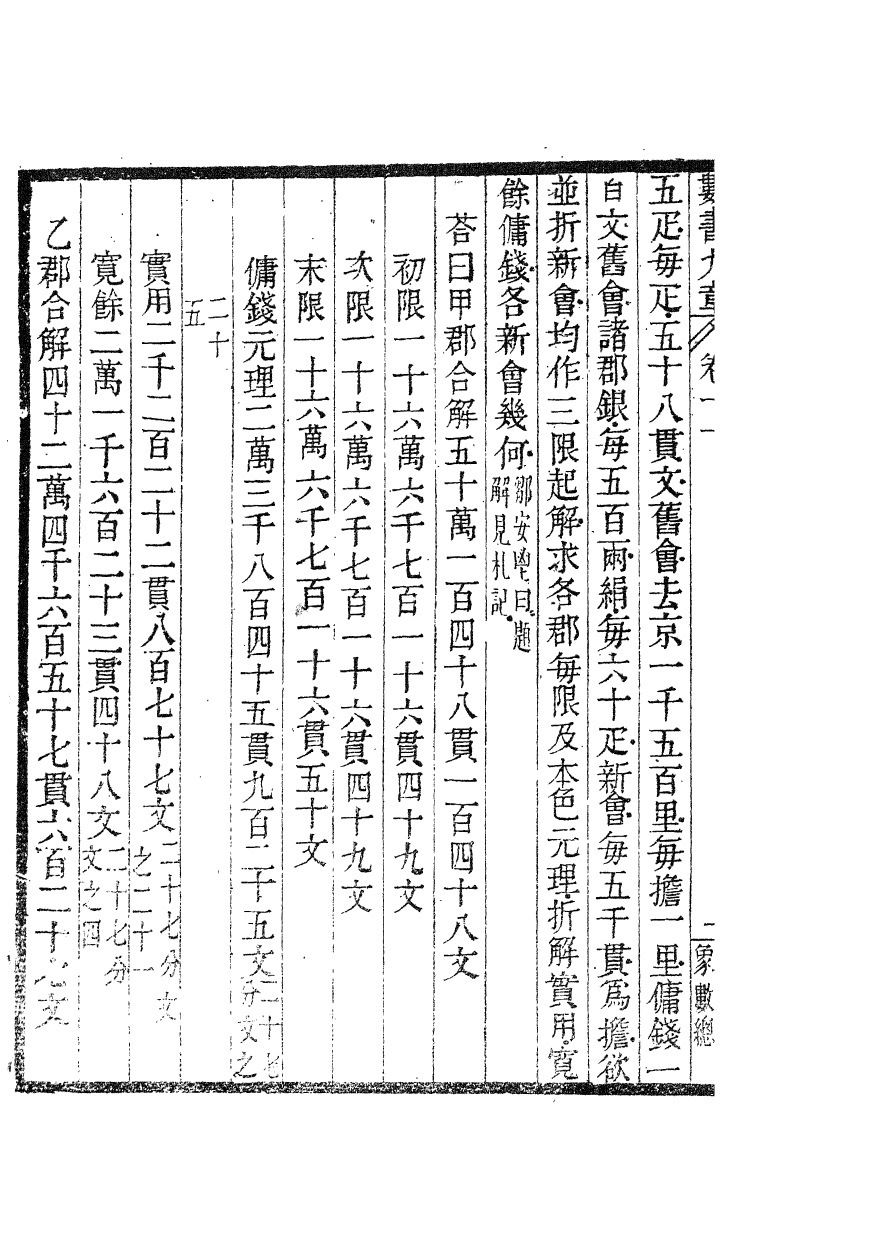 數書九章 卷十一 二 象數總
五疋每疋五十八貫文舊會去京一千五百里每擔一里傭錢一
百文舊會諸郡銀每五百兩絹每六十疋新會每五千貫爲擔欲
並折新會均作三限起解求各郡每限及本色元理折解實用寬
餘傭錢各新會幾何鄒安鬯曰題
解見札記
荅曰甲郡合解五十萬一百四十八貫一百四十八文
初限一十六萬六千七百一十六貫四十九文
次限一十六萬六千七百一十六貫四十九文
末限一十六萬六千七百一十六貫五十文
傭錢元理二萬三千八百四十五貫九百二十五文二十七
分文之
二十
五
實用二千二百二十二貫八百七十七文二十七分文
之二十一
寬餘二萬一千六百二十三貫四十八文二十七分
文之四
乙郡合解四十二萬四千六百五十七貫六百二十九文